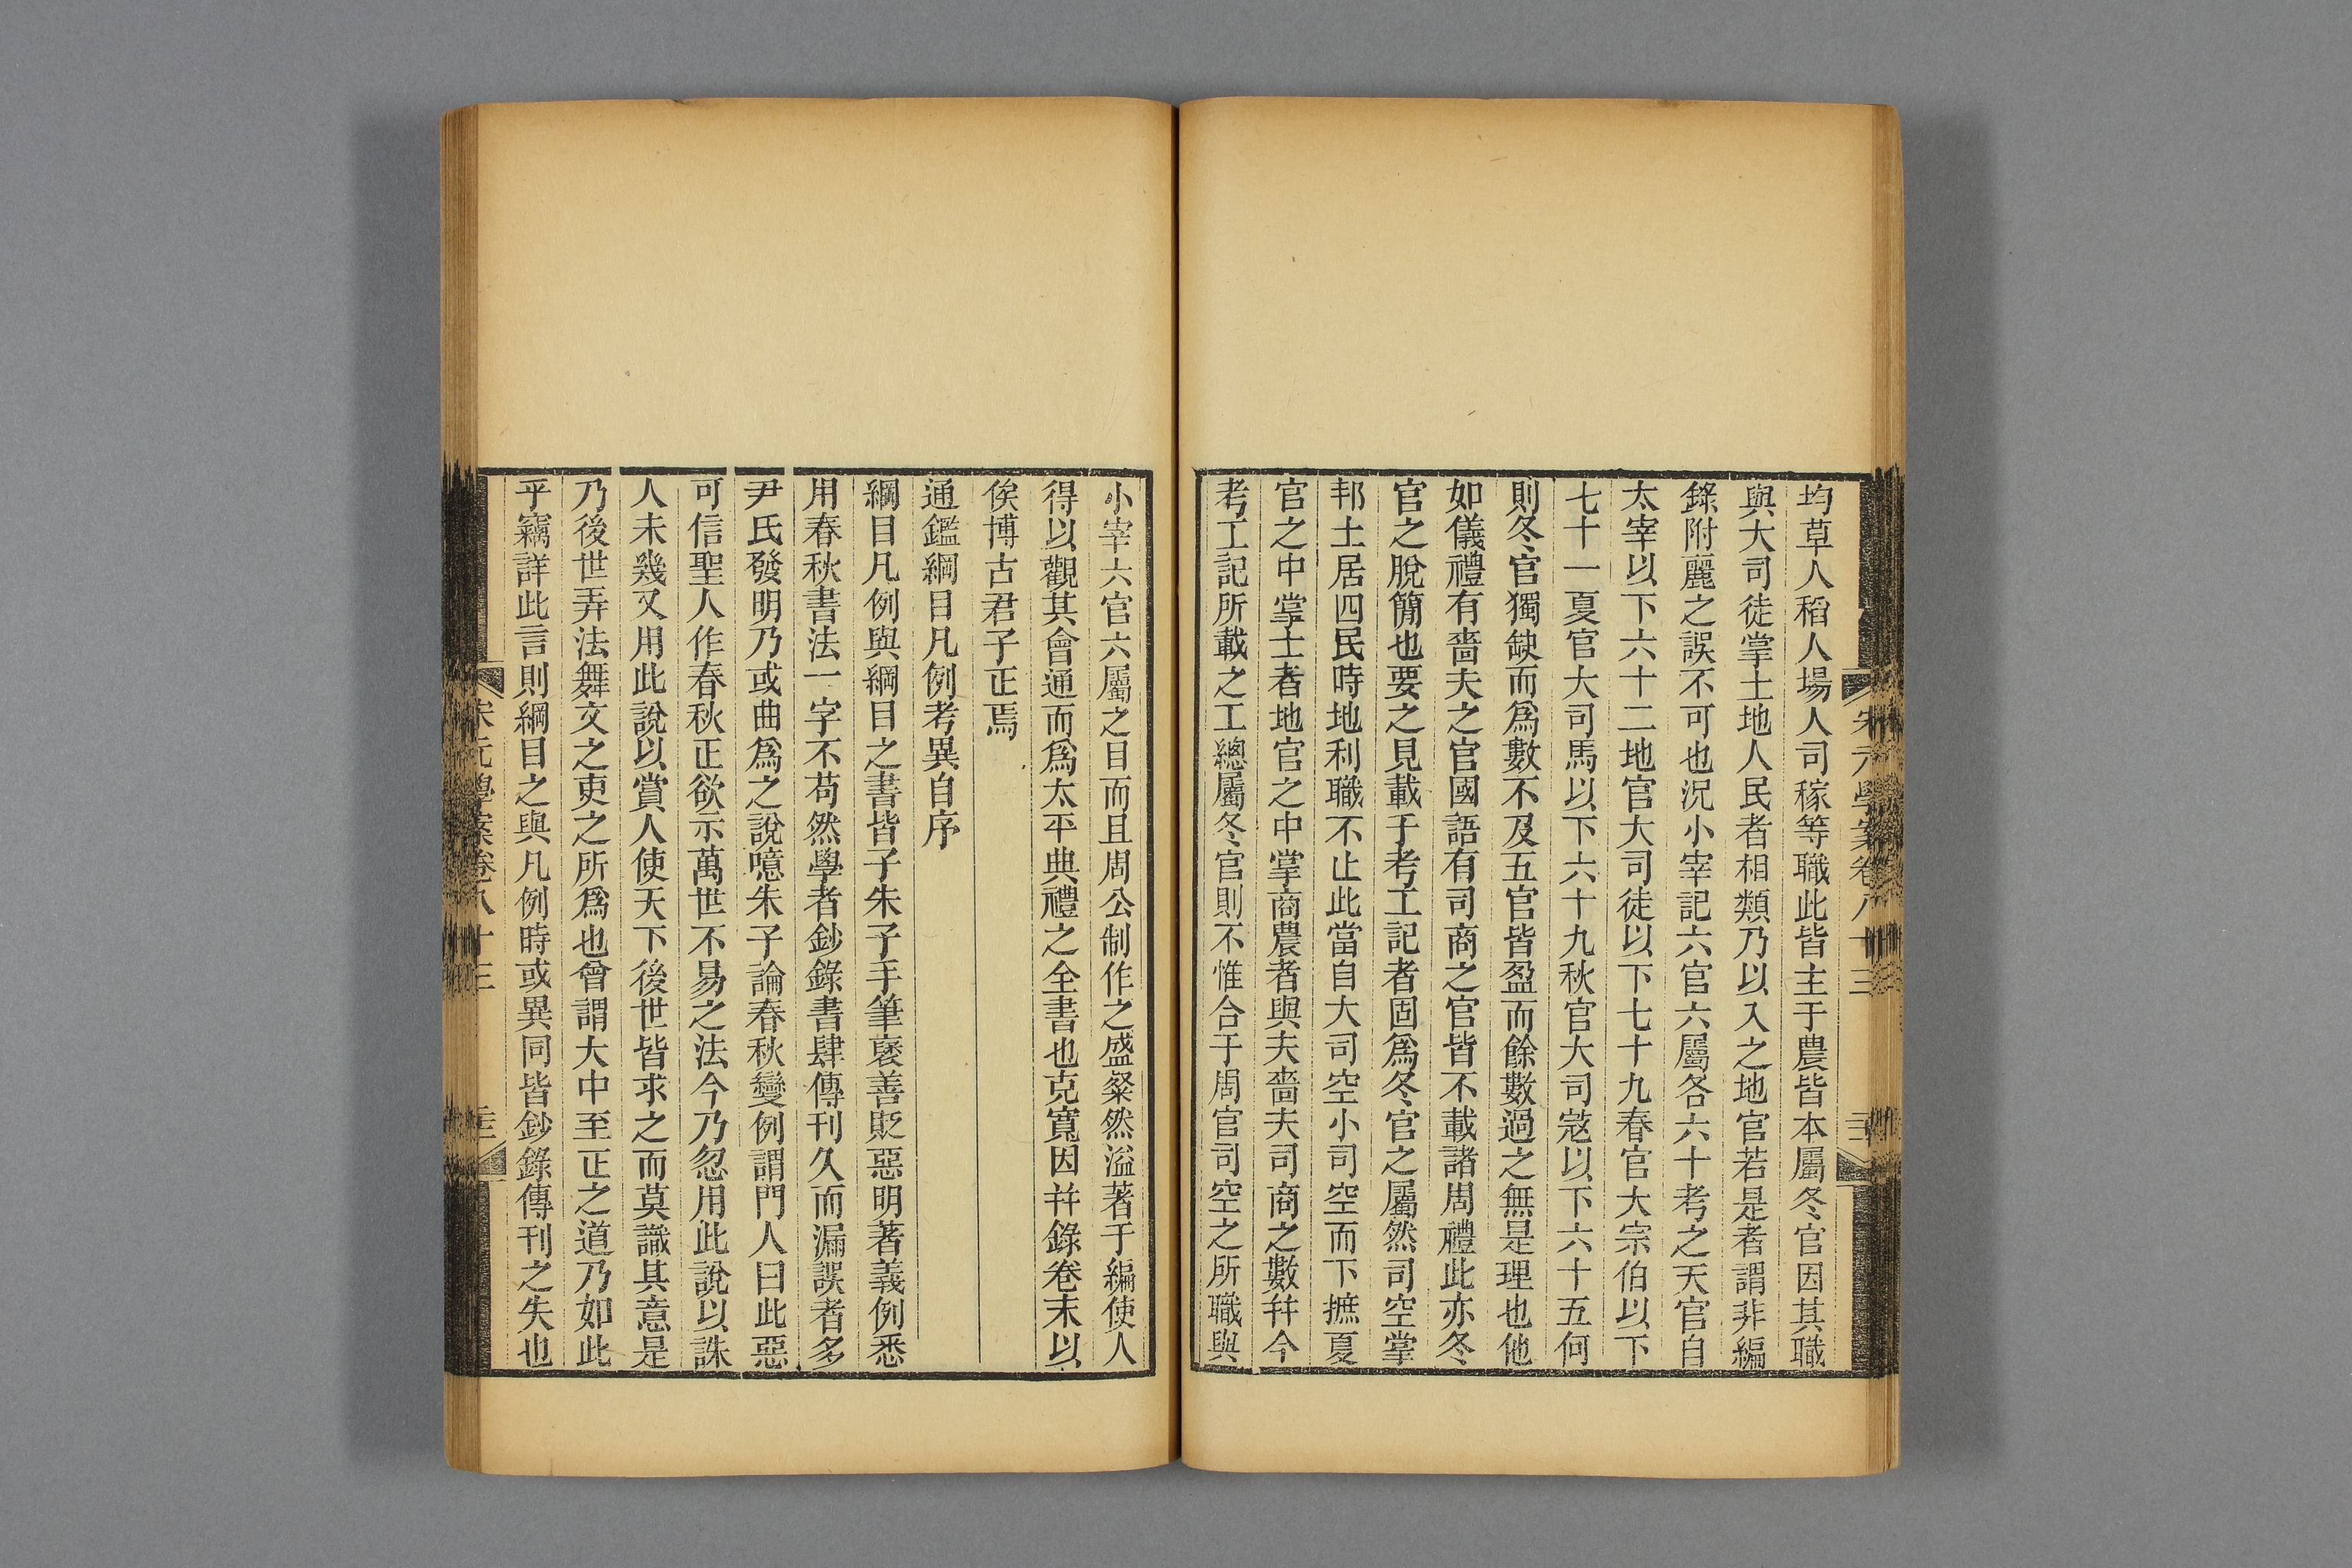 宋元學案卷八十三
均草人稻人場人司稼等職此皆主于農皆本屬冬官因其職
與大司徒掌土地人民者相類乃以入之地官若是者謂非編
錄附麗之誤不可也況小宰記六官六屬各六十考之天官自
太宰以下六十二地官大司徒以下七十九春官大宗伯以下
七十一夏官大司馬以下六十九秋官大司寇以下六十五何
則冬官獨缺而爲數不及五官皆盈而餘數過之無是理也他
如儀禮有嗇夫之官國語有司商之官皆不載諸周禮此亦冬
官之脫簡也要之見載于考工記者固爲冬官之屬然司空掌
邦土居四民時地利職不止此當自大司空小司空而下摭夏
官之中掌士者地官之中掌商農者與夫嗇夫司商之數幷今
考工記所載之工總屬冬官則不惟合于周官司空之所職與
小宰六官六屬之目而且周公制作之盛粲然溢著于編使人
得以觀其會通而爲太平典禮之全書也克寬因幷錄卷末以
俟博古君子正焉
通鑑綱目凡例考異自序
綱目凡例與綱目之書皆子朱子手筆褒善貶惡明著義例悉
用春秋書法一字不苟然學者鈔錄書肆傳刊久而漏誤者多
尹氏發明乃或曲爲之說噫朱子論春秋變例謂門人曰此惡
可信聖人作春秋正欲示萬世不易之法今乃忽用此說以誅
人未幾又用此說以賞人使天下後世皆求之而莫識其意是
乃後世弄法舞文之吏之所爲也曾謂大中至正之道乃如此
乎竊詳此言則綱目之與凡例時或異同皆鈔錄傳刊之失也
宋元學案卷八十三